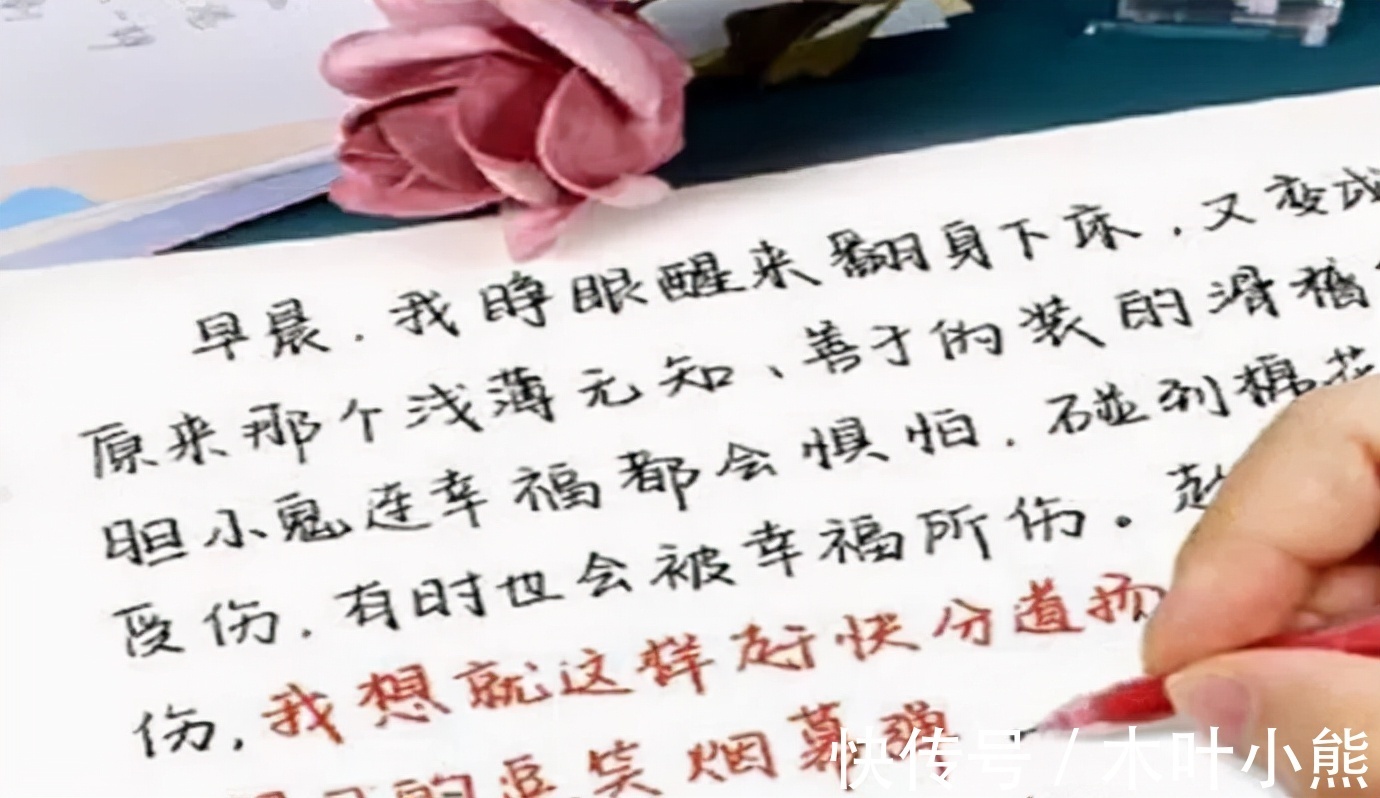 早晨，我睁眼醒来翻身下床，又变成
原来那个浅薄无知、善于伪装的滑稽
胆小鬼连幸福都会惧怕，碰到棉花
受伤，有时也会被幸福所伤。趁
伤，我想就这样赶快分道扬
的逗笑烟幕弹
快传号/木叶小熊